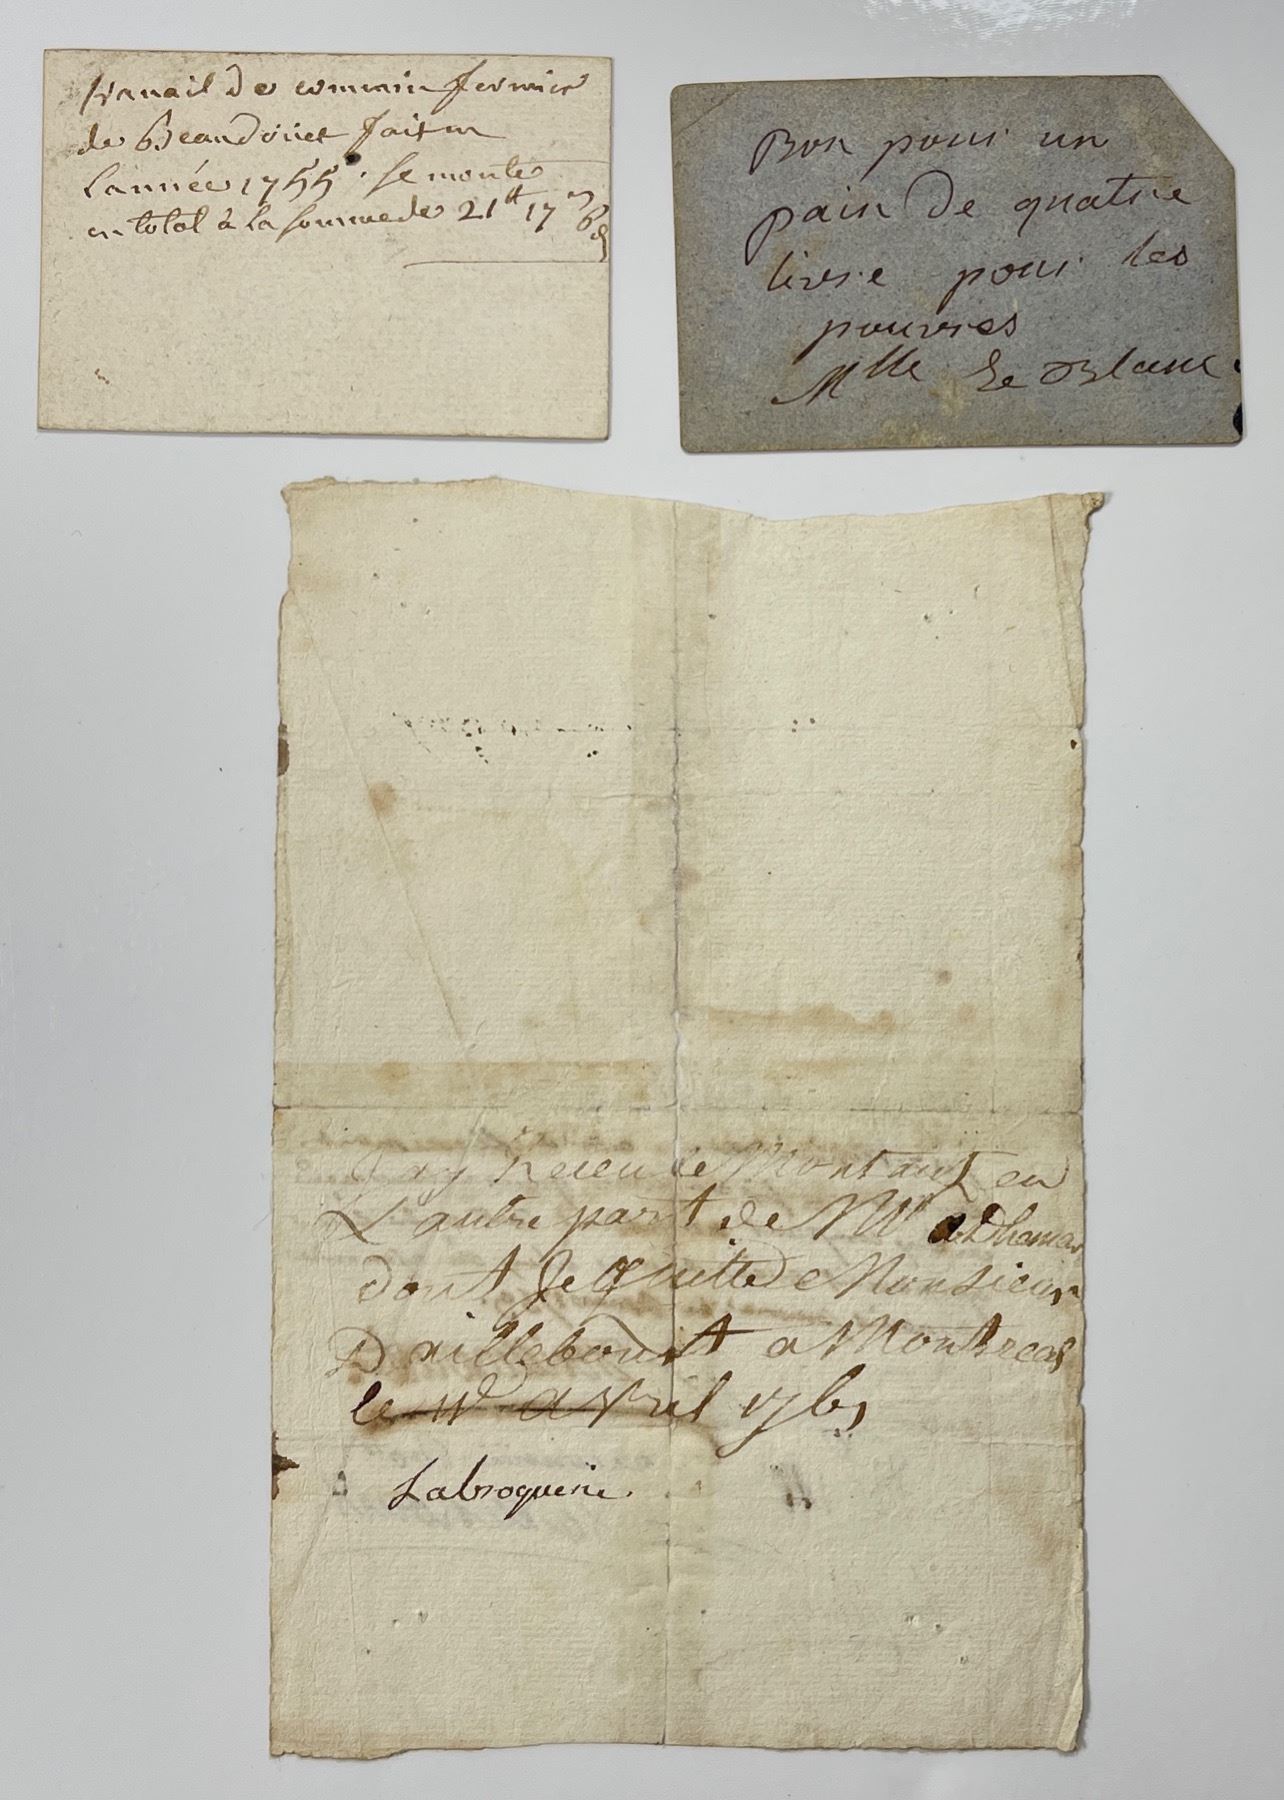 travail de commin fermier
de Beaudouet fait en
l'année 1755 . se monte
en total à la somme de 21tt 17s 6d
Bon pour un
pain De quatre
livre pour les
pouvres
Mlle Le Blanc
Jay Receu le Montant en
L'autre part de Mr adhemar
dont Je quitte Monsieur
Daillebout a Montreal
le 11e avril 1761
Labroquerie.